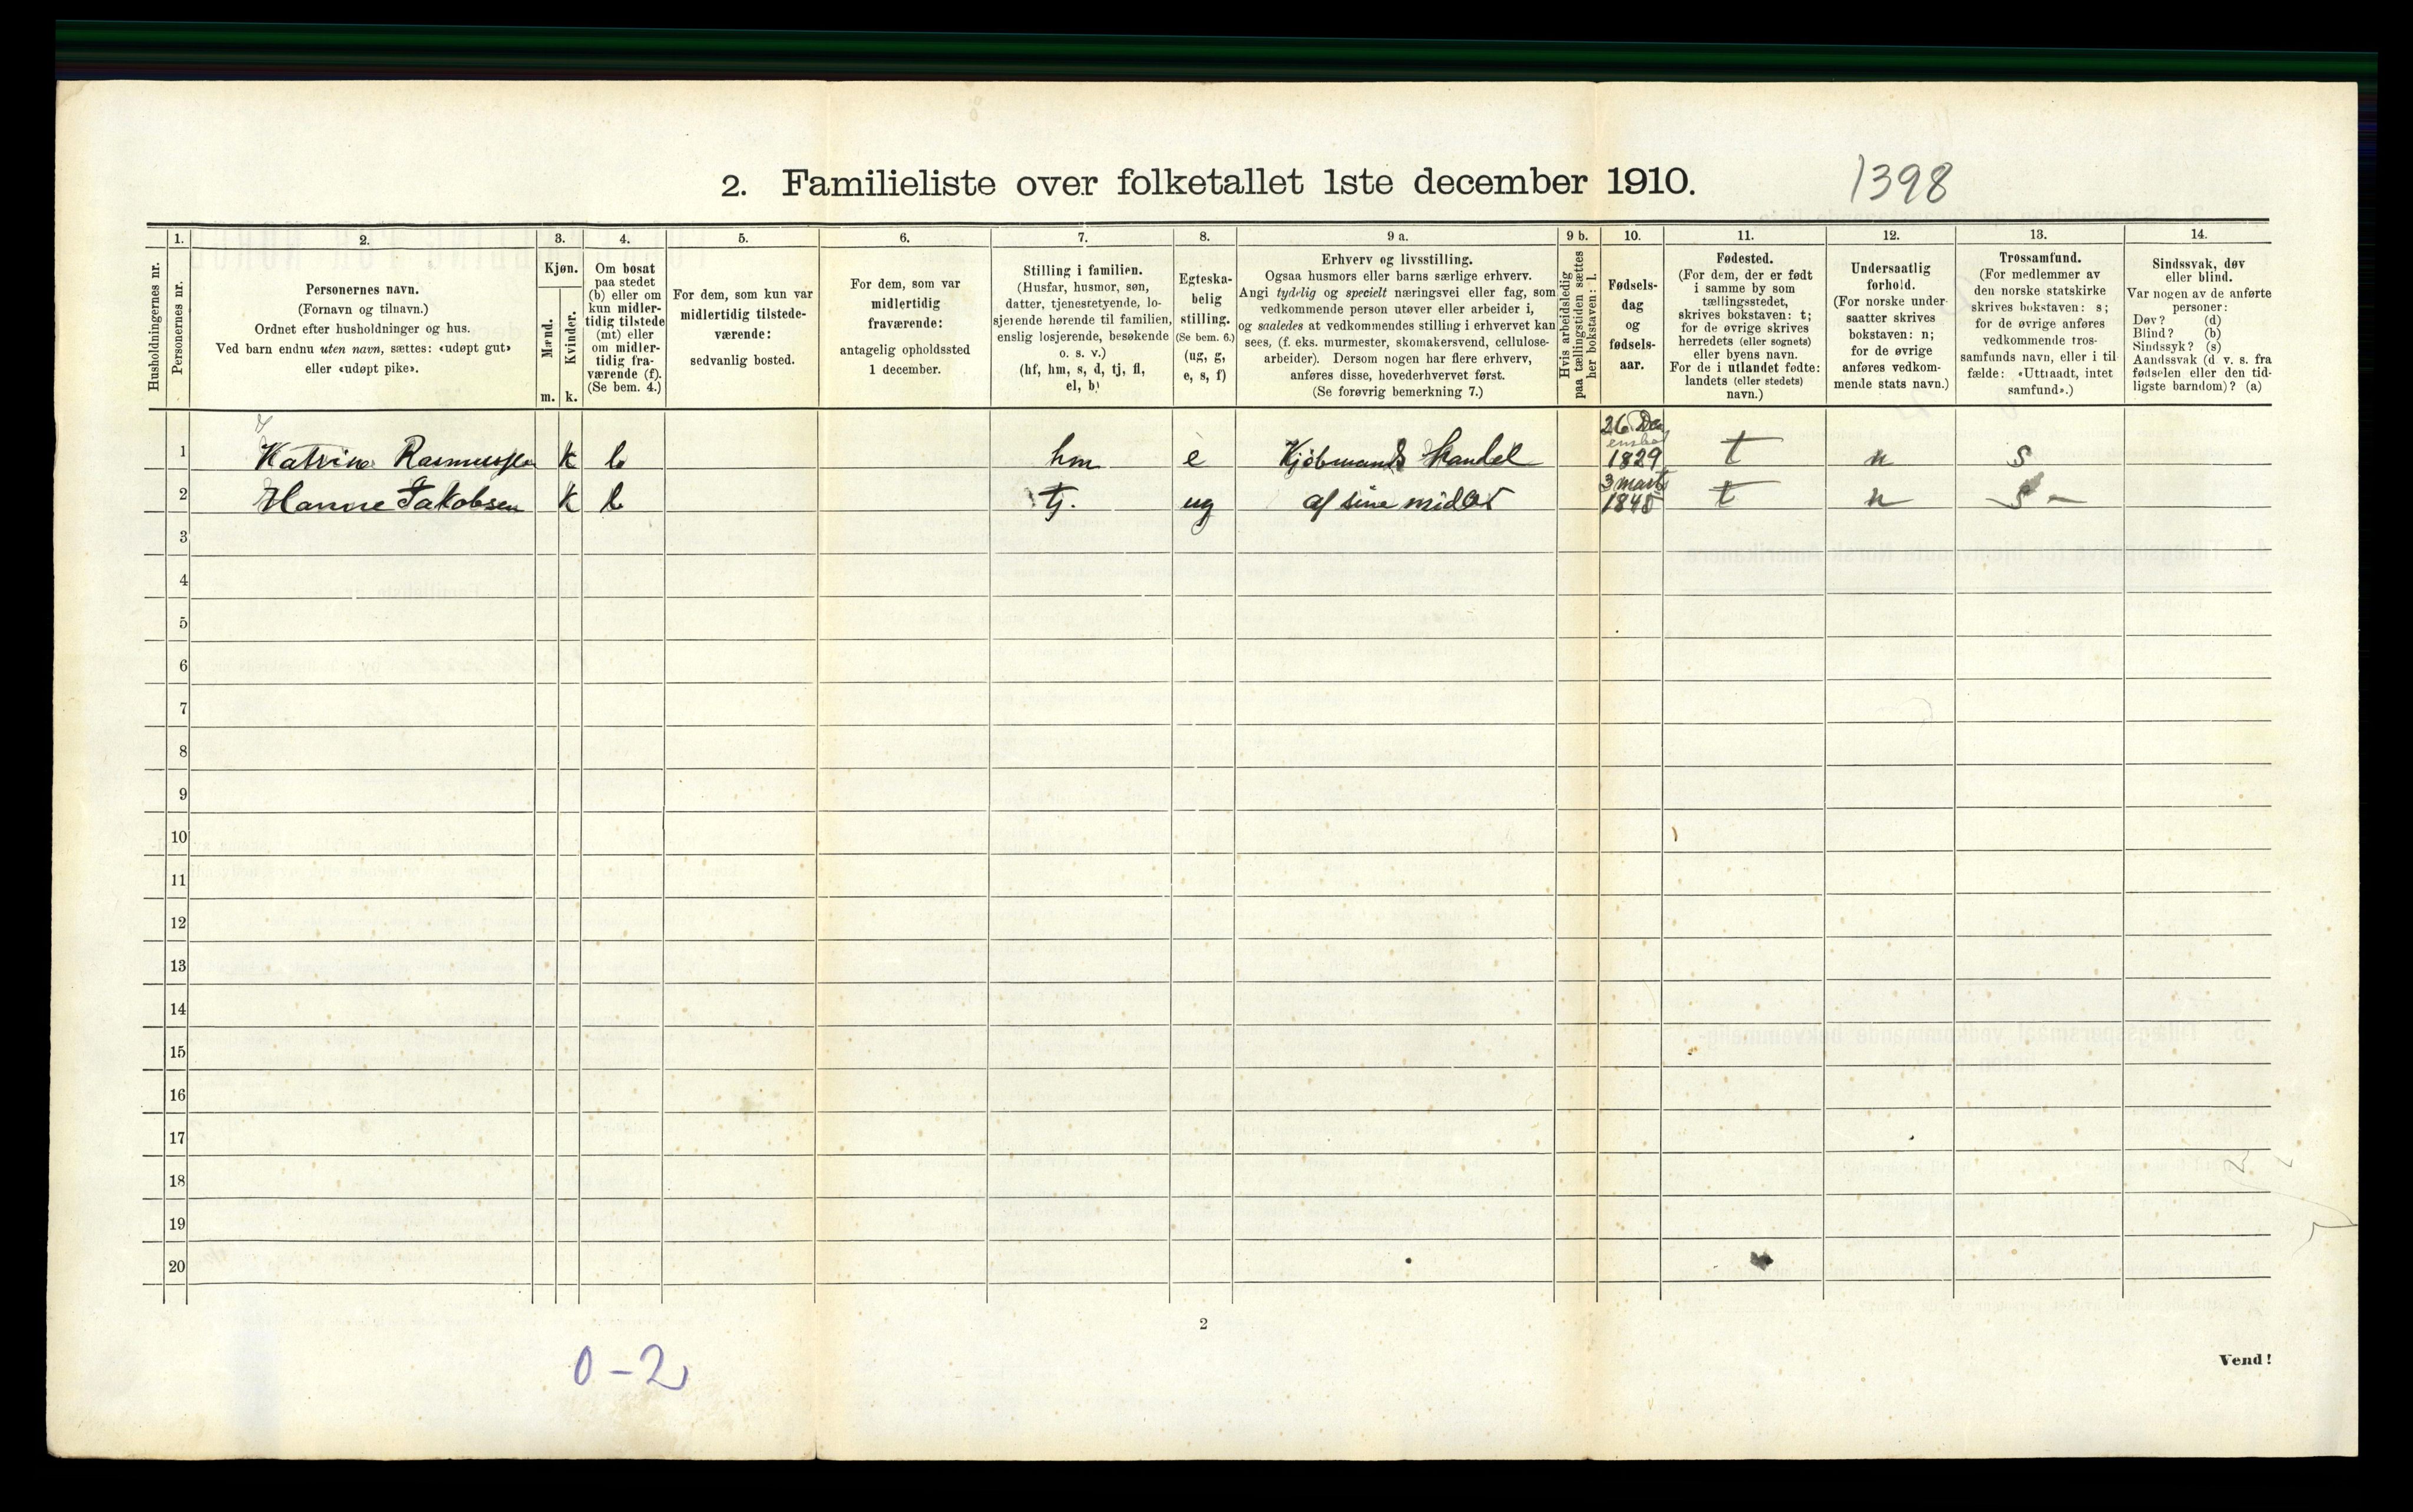 2. Familieliste over folketallet 1ste december 1910.
1398
Husholdningernes nr.
1.
Personernes nr.
2.
Personernes navn.
(Fornavn og tilnavn.)
Ordnet efter husholdninger og hus.
Ved barn endnu uten navn, sættes: «udøpt gut»
eller «udøpt pike».
3.
Kjøn.
Mænd.
Kvinder.
m. k.
4.
Om bosat
paa stedet
(b) eller om
kun midler-
tidig tilstede
(mt) eller
om midler-
tidig fra-
værende (f).
(Se bem. 4.)
5.
For dem, som kun var
midlertidig tilstede-
værende:
sedvanlig bosted.
6.
For dem, som var
midlertidig
fraværende:
antagelig opholdssted
1 december.
7.
Stilling i familien.
(Husfar, husmor, søn,
datter, tjenestetyende, lo-
sjerende hørende til familien,
enslig losjerende, besøkende
o. s. v.)
(hf, hm, s, d, tj, fl,
el, b)
8.
Egteska-
belig
stilling.
(Se bem. 6.)
(ug, g,
e, s, f)
9 a.
Erhverv og livsstilling.
Ogsaa husmors eller barns særlige erhverv.
Angi tydelig og specielt næringsvei eller fag, som
vedkommende person utøver eller arbeider i,
og saaledes at vedkommendes stilling i erhvervet kan
sees, (f. eks. murmester, skomakersvend, cellulose-
arbeider). Dersom nogen har flere erhverv,
anføres disse, hovederhvervet først.
(Se forøvrig bemerkning 7.)
9 b.
Hvis arbeidsledig
paa tællingstiden sættes
her bokstaven: l.
10.
Fødsels-
dag
og
fødsels-
aar.
11.
Fødested.
(For dem, der er født
i samme by som
tællingsstedet,
skrives bokstaven: t;
for de øvrige skrives
herredets (eller sognets)
eller byens navn.
For de i utlandet fødte:
landets (eller stedets)
navn.)
12.
Undersaatlig
forhold.
(For norske under-
saatter skrives
bokstaven: n;
for de øvrige
anføres vedkom-
mende stats navn.)
13.
Trossamfund.
(For medlemmer av
den norske statskirke
skrives bokstaven: s;
for de øvrige anføres
vedkommende tros-
samfunds navn, eller i til-
fælde: «Uttraadt, intet
samfund».)
14.
Sindssvak, døv
eller blind.
Var nogen av de anførte
personer:
Døv? (d)
Blind? (b)
Sindssyk? (s)
Aandssvak (d. v. s. fra
fødselen eller den tid-
ligste barndom)? (a)
1 Katrine Rasmussen k b hm e Kjöbmands Handel 26 De 1829 t n s
2 Hanne Jakobsen k b tj. ug af sine midler 3 marts 1845 t n s
3
4
5
6
7
8
9
10
11
12
13
14
15
16
17
18
19
20
2
0-2
Vend!